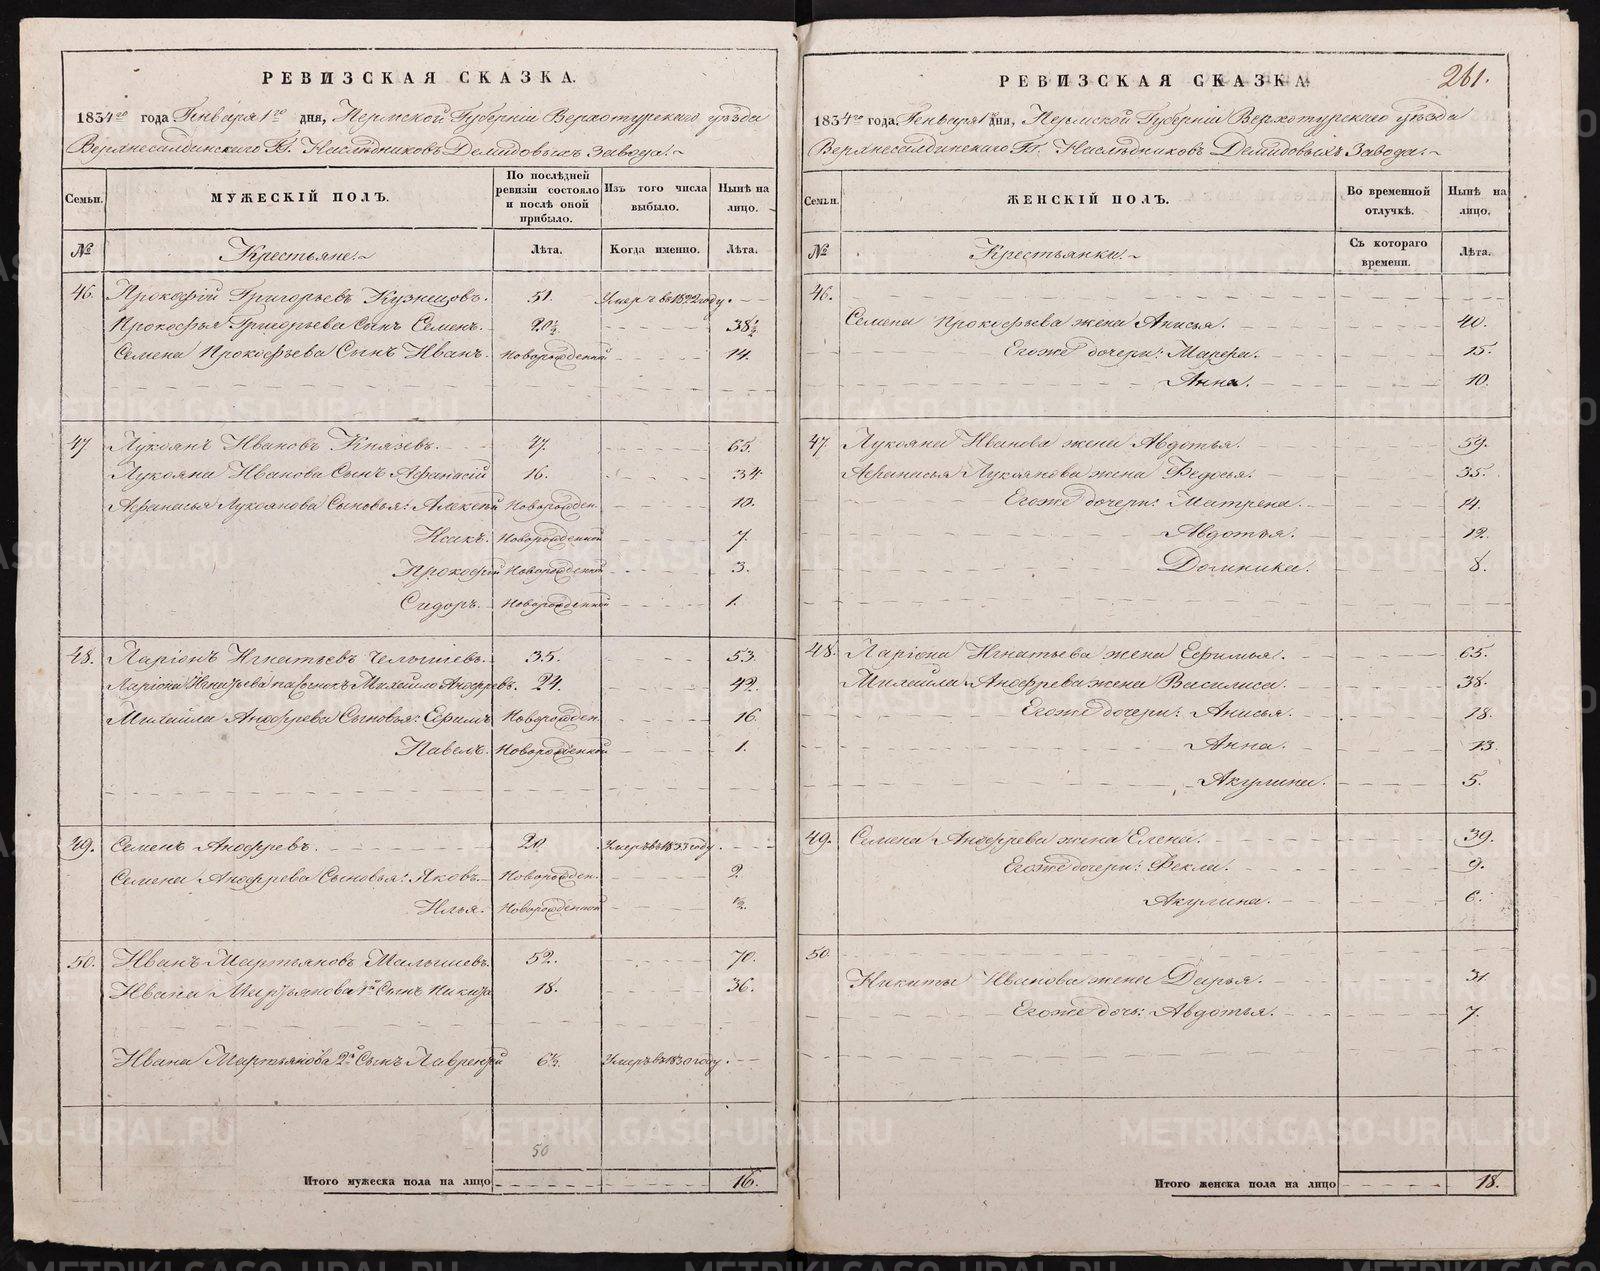 РЕВИЗСКАЯ СКАЗКА.
1834го года Генваря 1го дня, Пермской Губерніи Верхотурскаго уѣзда
Верхнесалдинскаго Гг. Наслѣдниковъ Демидовыхъ Завода.
Семьи.
МУЖЕСКІЙ ПОЛЪ.
По послѣдней ревизіи состояло и послѣ оной прибыло.
Изъ того числа выбыло.
Нынѣ на лицо.
№
Крестьяне.
Лѣта.
Когда именно.
Лѣта.
46. Прокофій Григорьевъ Кузнецовъ. 51. Умеръ въ 1822 году.
Прокофья Григорьева Сынъ Семенъ. 20½ 38½
Семена Прокофьева Сынъ Иванъ. Новорожденной 14.
47 Лукоянъ Ивановъ Князевъ. 47. 65.
Лукояна Иванова Сынъ Афанасій 16. 34.
Афанасья Лукоянова Сыновья: Алексѣй Новорожден. 10.
Исакъ. Новорожденной 7.
Прокофій Новорожденной 3.
Сидоръ. Новорожденной 1.
48. Ларіонъ Игнатьевъ Челышевъ. 35. 53.
Ларіона Игнатьева пасынокъ Михайло Анофревъ. 24. 42.
Михайла Анофрева Сыновья: Ефимъ Новорожден. 16.
Павелъ. Новорожденной 1.
49. Семенъ Анофревъ. 20. Умеръ въ 1833 году.
Семена Анофрева Сыновья: Яковъ. Новорожден. 2
Илья. Новорожденной ½.
50. Иванъ Мартьяновъ Малышевъ. 52. 70.
Ивана Мартьянова 1й Сынъ Никита 18. 36.
Ивана Мартьянова 2й Сынъ Лаврентій 6½. Умеръ въ 1830 году.
50
Итого мужеска пола на лицо 16.
261.
РЕВИЗСКАЯ СКАЗКА
1834го года. Генваря 1го дня, Пермской Губерніи Верхотурскаго уѣзда
Верхнесалдинскаго Гг. Наслѣдниковъ Демидовыхъ Завода.
Семьи.
ЖЕНСКІЙ ПОЛЪ.
Во временной отлучкѣ.
Нынѣ на лицо.
№
Крестьянки.
Съ котораго времени.
Лѣта.
46.
Семена Прокофьева жена Анисья. 40.
Егоже дочери: Марфа. 15.
Анна. 10.
47. Лукояна Иванова жена Авдотья. 59.
Афанасья Лукоянова жена Федосья. 35.
Егоже дочери: Матрена. 14.
Авдотья. 12.
Домника. 8.
48. Ларіона Игнатьева жена Ефимья. 65.
Михайла Анофрева жена Василиса. 38.
Егоже дочери: Анисья. 18.
Анна. 13.
Акулина. 5.
49. Семена Анофрева жена Елена. 39.
Егоже дочери: Фекла. 9.
Акулина. 6.
50.
Никиты Иванова жена Дарья. 31.
Егоже дочь: Авдотья. 7.
Итого женска пола на лицо 18.
METRIKI.GASO-URAL.RU